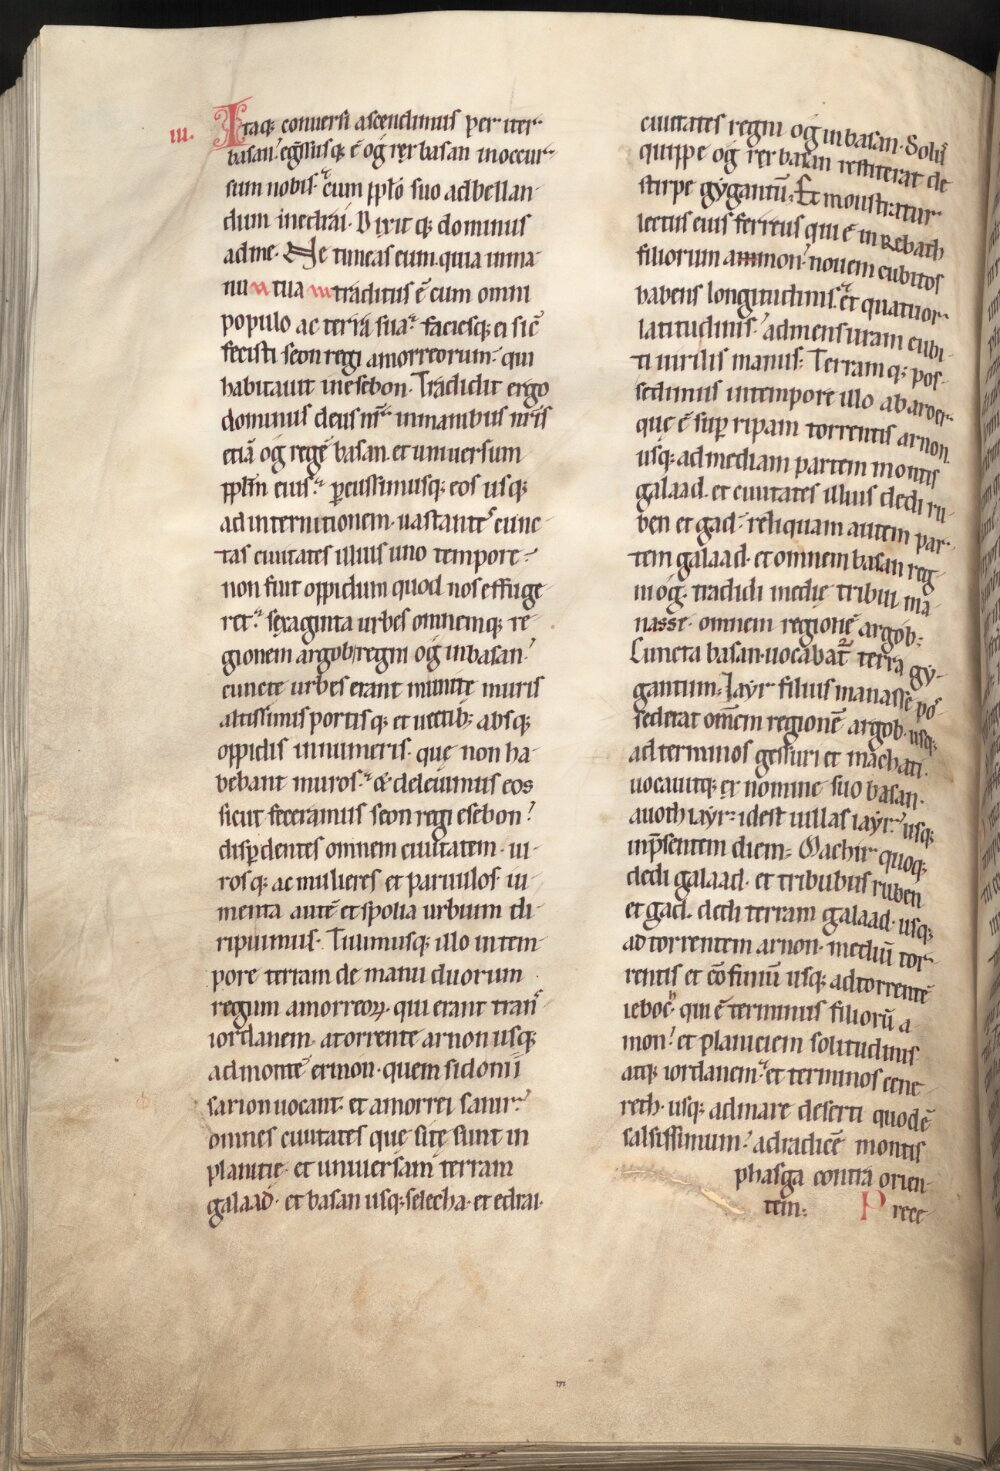 III.
Itaq; conuersi ascendimus per iter
basan. egressusq; ē og rex basan in occur-
sum nobis. cum pplo suo ad bellan-
dum in edrai. Dixit q; dominus
ad me. Ne timeas eum. quia in ma-
nu tua traditus ē cum omni
populo ac terra sua. faciesq; ei sic
fecisti seon regi amorreorum. qui
habitauit in esebon. Tradidit ergo
dominus deus nr̄ in manibus nr̄is
etiā og regē basan. et uniuersum
pplm eius. percussimusq; eos usq;
ad internitionem. uastantes cunc-
tas ciuitates illius uno tempore.
non fuit oppidum quod nos effuge-
ret. sexaginta urbes omnemq; re-
gionem argob regni og in basan.
cuncte urbes erant munite muris
altissimis portisq; et uectib; absq;
oppidis innumeris. que non ha-
bebant muros. & deleuimus eos
sicut feceramus seon regi esebon.
disperdentes omnem ciuitatem. ui-
rosq; ac mulieres et paruulos. iu-
menta autē et spolia urbium di-
ripuimus. Tulimusq; illo in tem-
pore terram de manu duorum
regum amorreoꝝ. qui erant trans
iordanem. a torrente arnon usq;
ad montē ermon. quem sidonii
sarion uocant. et amorrei sanir.
omnes ciuitates que site sunt in
planitie. et uniuersam terram
galaad. et basan usq; selecha. et edrai.
ciuitates regni og in basan. Solus
quippe og rex basan restiterat de
stirpe gygantū. Et monstratur
lectus eius ferreus qui ē in Rebath
filiorum ammon. nouem cubitos
habens longitudinis. et quatuor
latitudinis. ad mensuram cubi-
ti uirilis manus. Terramq; pos-
sedimus in tempore illo ab aroer
que ē super ripam torrentis arnon.
usq; ad mediam partem montis
galaad. et ciuitates illius dedi ru-
ben et gad. reliquam autem par-
tem galaad. et omnem basan reg-
ni og. tradidi medie tribui ma-
nasse. omnem regionē argob.
Cuncta basan. uocabat᷑ terra gy-
gantum. Iayr filius manasse pos-
sederat omēm regionē argob. usq;
ad terminos gessuri et machati.
uocauitq; ex nomine suo basan.
auoth iayr. id est uillas iayr. usq;
in p̄sentem diem. Machir quoq;
dedi galaad. et tribubus ruben
et gad. dedi terram galaad. usq;
ad torrentem arnon. mediū tor-
rentis et cōfiniū usq; ad torrentē
ieboc. qui ē terminus filiorū a
mon. et planiciem solitudinis
atq; iordanem. et terminos cene-
reth. usq; ad mare deserti quod ē
salsissimum. ad radicē montis
phasga contra orien-
tem. Prece
m